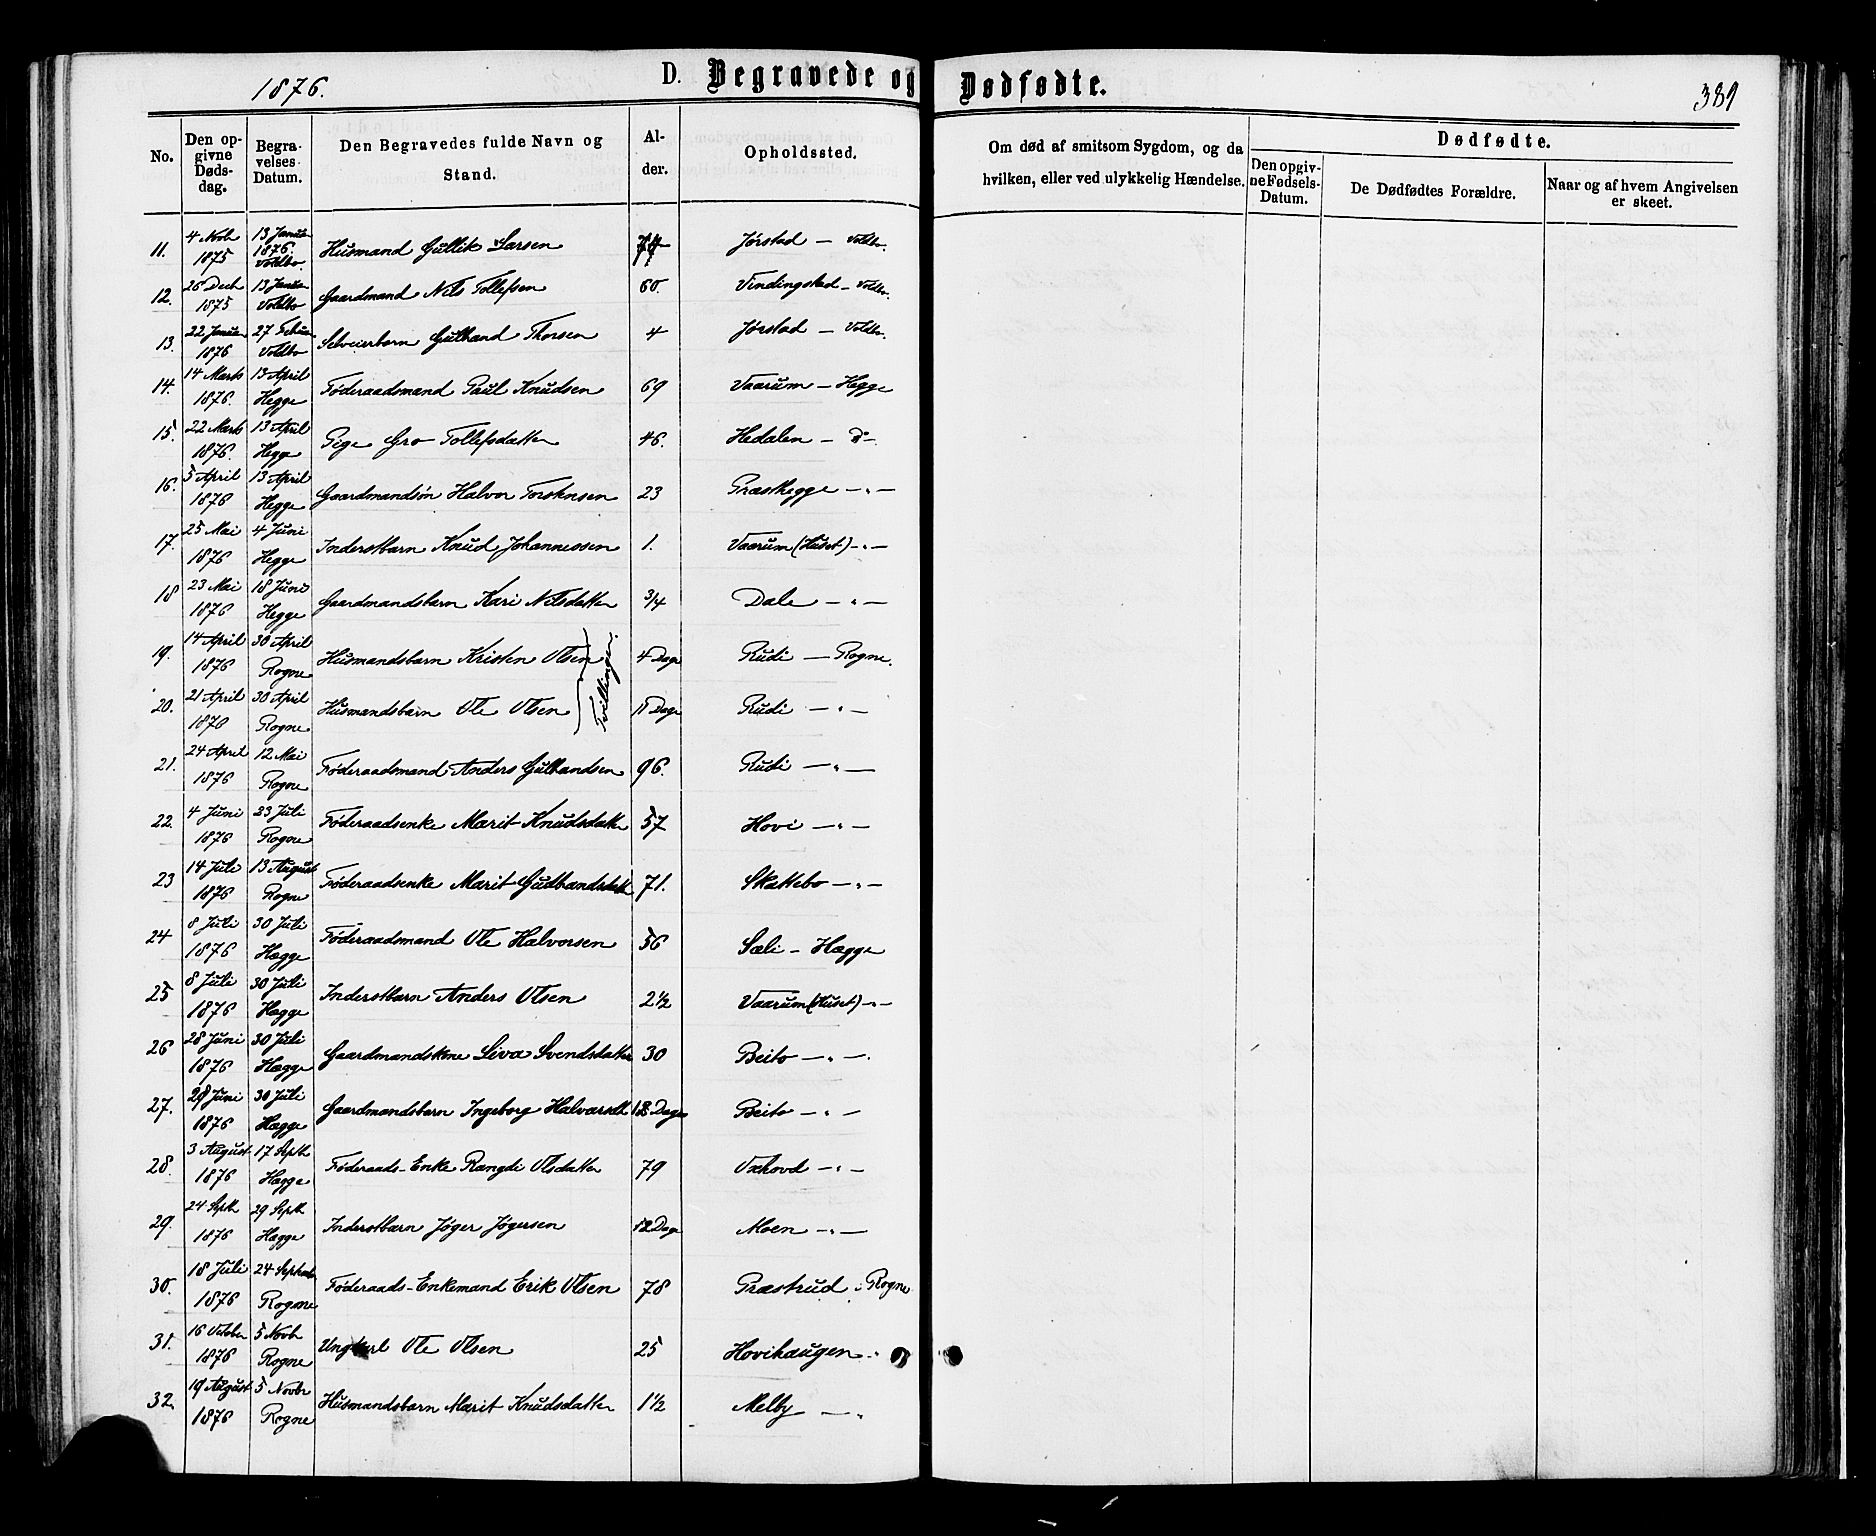 1876.
D. Begravede og Dødfødte.
389
No.
Den opgivne Dødsdag.
Begravelses Datum.
Den Begravedes fulde Navn og Stand.
Alder.
Opholdssted.
Om død af smitsom Sygdom, og da hvilken, eller ved ulykkelig Hændelse.
Dødfødte.
Den opgivne Fødsels-Datum.
De Dødfødtes Forældre.
Naar og af hvem Angivelsen er skeet.
11. 4 Novb 1875 13 Janua 1876. Voldbo. Husmand Gullik Larsen Jørstad — Voldbo.
12. 26 Decb 1875 13 Janua Voldbo Gaardmand Nils Tollefsen 60. Vindingstad — Voldbo.
13. 22 Janua 1876 27 Februa Voldbo Selveierbarn Gulband Thorsen 4 Jørstad — Voldbo.
14. 14 Marts 1876. 13 April Hegge Føderaadsmand Paul Knudsen 69 Vaarum — Hegge
15. 22 Marts 1876. 13 April Hegge Pige Gro Tollefsdatter 46. Hedalen — do —
16. 5 April 1876 13 April Hegge Gaardmandsøn Halvor Torstensen 23 Præsthegge — " —
17. 25 Mai 1876 4 Juni Hegge Inderstbarn Knud Johannessen 1. Vaarum (Huset) — " —
18 23 Mai 1876 18 Juni Hegge Gaardmandsbarn Kari Nilsdatter 3/4 Dale — " —
19. 14 April 1876 30 April Rogne Husmandsbarn Kristen Olsen 4 Dage Rudi — Rogne.
Tvillinger.
20. 21 April 1876 30 April Rogne Husmandsbarn Ole Olsen 11 Dage Rudi — " —
21. 24 April 1876 12 Mai Rogne Føderaadsmand Anders Gulbandsen 96. Rudi — " —
22. 4 Juni 1876 23 Juli Rogne Føderaadsenke Marit Knudsdatte 57 Hovi — " —
23 14 Juli 1876 13 August Rogne Føderaadsenke Marit Gudbandsdatt 71. Skattebo — " —
24 8 Juli 1876 30 Juli Hægge Føderaadsmand Ole Halvorsen 56 Sæli — Hægge
25 8 Juli 1876 30 Juli Hægge Inderstbarn Anders Olsen 2 1/2 Vaarum (Huset) — " —
26 28 Juni 1876 30 Juli Hægge Gaardmandskone Siva Svendsdatter 30 Beito — " —
27. 29 Juni 1876 30 Juli Hægge Gaardmandsbarn Ingeborg Halvorsdt. Dage Beito — " —
28. 3 August 1876 17 Septb Hægge Føderaads-Enke Rangdi Olsdatter 79 Oxhovd — " —
29. 24 Septb 1876 29 Septb Hægge Inderstbarn Jøger Jøgersen 12 Dage Moen — " —
30. 18 Juli 1876 24 Septemb Rogne Føderaads-Enkemand Erik Olsen 78 Præstrud " Rogne
31. 16 October 1876 5 Novb Rogne Ungkarl Ole Olsen 25 Hovihaugen "
32. 19 August 1876 5 Novbr Rogne Husmandsbarn Marit Knudsdatter 1 1/2 Melby — "